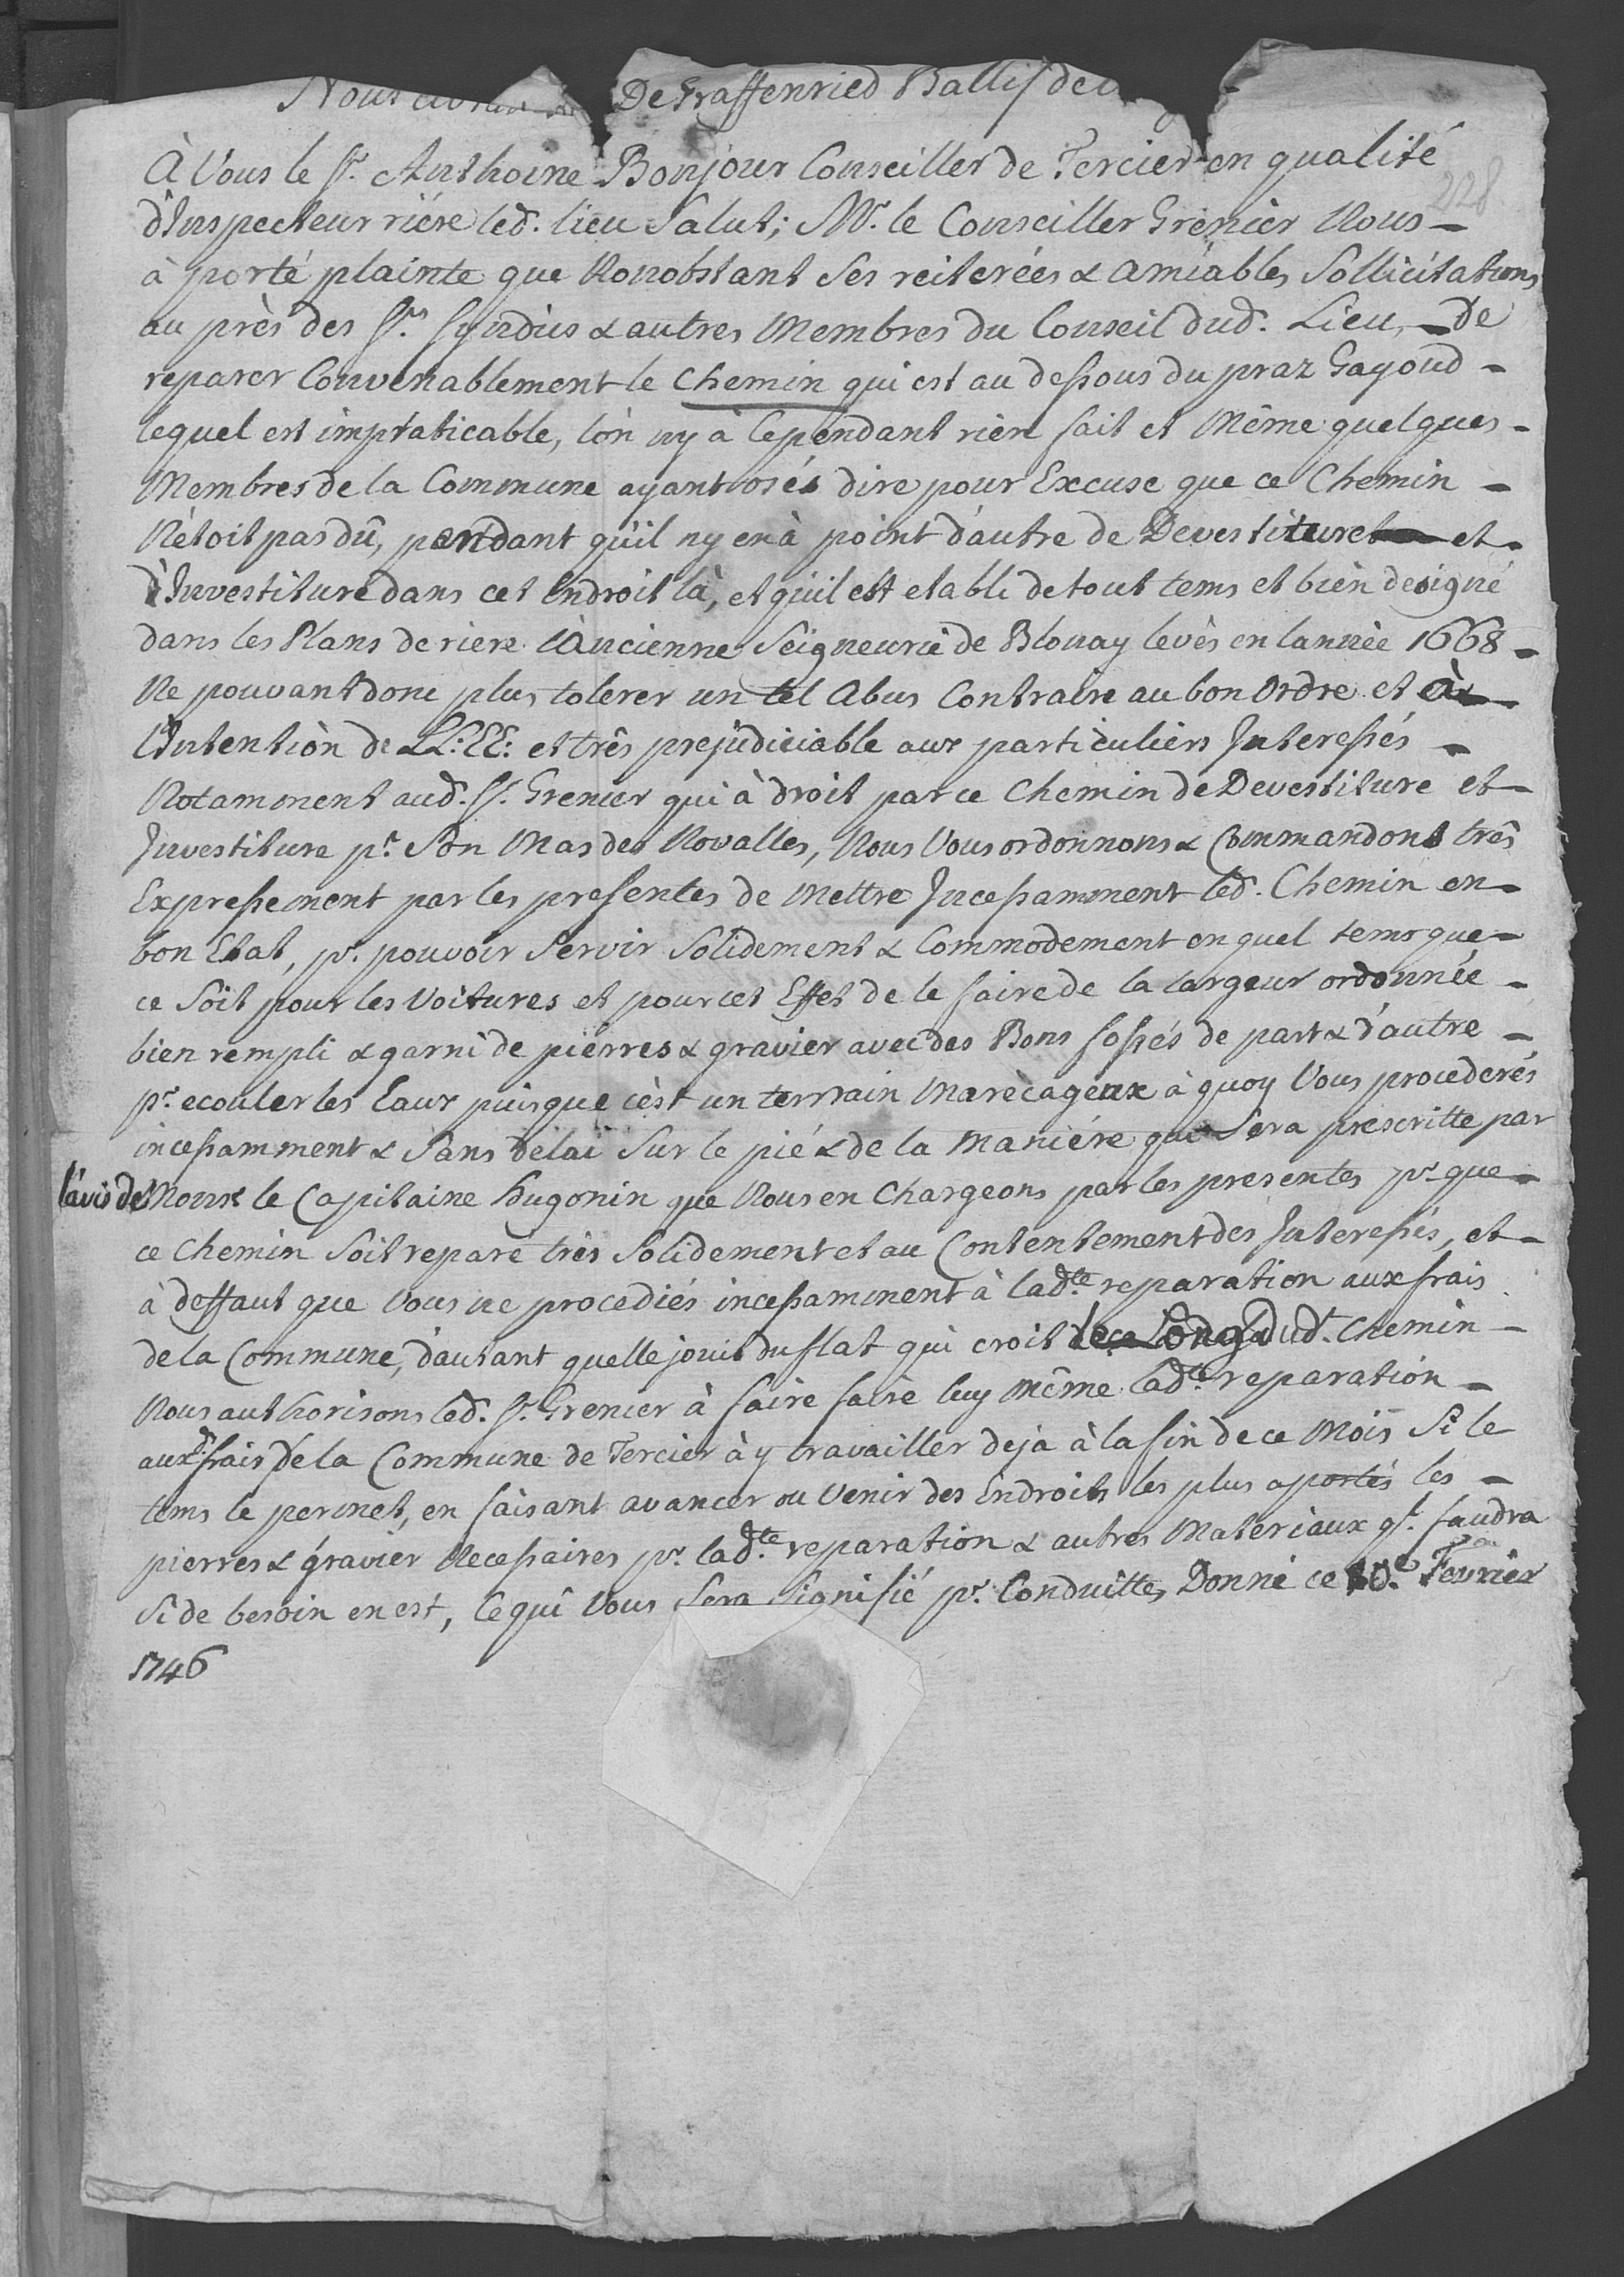 Nous De Graffenried Ballif de
À Vous le Sr. Anthoine Bonjour Conseiller de Tercier en qualité
228
d'Inspecteur riére led. lieu Salut; Mr. le Conseiller Grenier Nous
à porté plainte que Nonobstant Ses reiterées & amiables Sollicitations
au près des Srs. Syndics & autres Membres du Conseil dud. Lieu, de
reparer Convenablement le Chemin qui est au dessous du praz Gayoud
lequel est impraticable, l'on ny à Cependant rien fait et Même quelques
Membres de la Commune ayant osés dire pour Excuse que ce Chemin
N'etoit pas dû, pendant qu'il ny en à point d'autre de Devestiture et
d'Investiture dans cet Endroit là, et qu'il est etabli de tout tems et bien designé
dans les Plans de riere l'Ancienne Seigneurie de Blonay levés en lannée 1668
Ne pouvant donc plus tolerer un tel Abus Contraire au bon Ordre et à
l'Intention de LL:EE: et très prejudiciable aux particuliers Interessés
Notamment aud. Sr. Grenier qui à droit par ce Chemin de Devestiture et
Investiture pr. Son Mas des Novalles, Nous Vous ordonnons & Commandons très
Expressement par les presentes de Mettre Incessamment led. Chemin en
bon Etat, pr. pouvoir Servir Solidement & Commodement en quel tems que
ce Soit pour les Voitures et pour cet Effet de le faire de la largeur ordonnée
bien rempli & garni de pierres & gravier avec des Bons fossés de part & d'autre
pr. ecouler les Eaux puisque c'est un terrain Marècageux à quoy Vous procederés
incessamment & Sans délai Sur le pié & de la Maniére qui Sera prescritte par
l'avis de Monsr. le Capitaine Hugonin que Nous en Chargeons par les presentes pr. que
ce Chemin Soit reparé très Solidement et au Contentement des Interessés, et
à deffaut que Vous ne procediés incessamment à ladte. reparation aux frais
de la Commune, d'autant quelle jouit du flat qui croit le Long dudt. Chemin
Nous authorisons led. Sr. Grenier à faire faire luy Même ladte. reparation
aux frais de la Commune de Tercier à y travailler deja à la fin de ce Mois Si le
tems le permet, en faisant avancer ou Venir des Endroits les plus aportés les
pierres & gravier Necessaires pr. ladte. reparation & autres Materiaux qt. faudra
Si de besoin en est, Ce qui Vous Sera Signifié pr. Conduitte, Donné ce 10e. Fevrier
1746